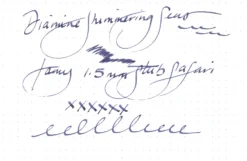 Diamine Shimmering Seas
Lamy 1.5mm stub Safari
xxxxxx